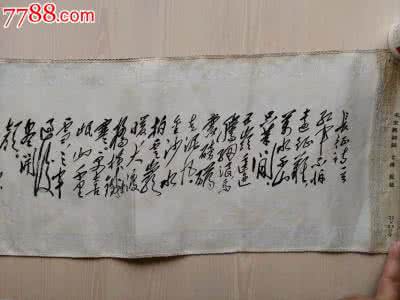 7788.com
长征诗一首
红军不怕
远征难
万水千山
只等闲
五岭逶迤
腾细浪乌
蒙磅礴
走泥丸
金沙水
拍云崖
暖大渡
桥横铁索
寒更喜
岷山千里
雪三军
过后
尽开
颜